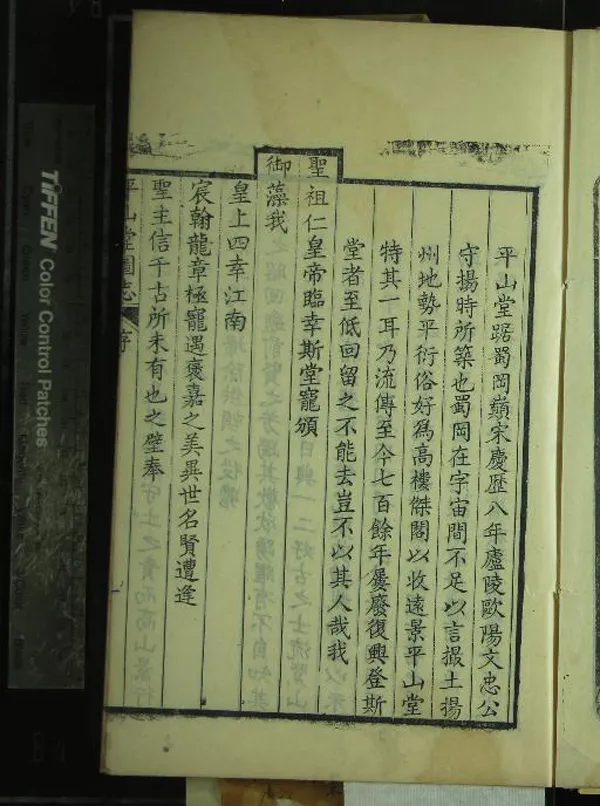 平山堂踞蜀岡巔宋慶歷八年廬陵歐陽文忠公
守揚時所築也蜀岡在宇宙間不足以言撮土揚
州地勢平衍俗好為高樓傑閣以收遠景平山堂
特其一耳乃流傳至今七百餘年屢廢復興登斯
堂者至低回留之不能去豈不以其人哉我
聖祖仁皇帝臨幸斯堂寵頒
御藻我
皇上四幸江南
宸翰龍章極寵遇褒嘉之美異世名賢遭逢
聖主信千古所未有也之璧奉
平山堂圖志 序 一
TIFFEN Color Control Patches